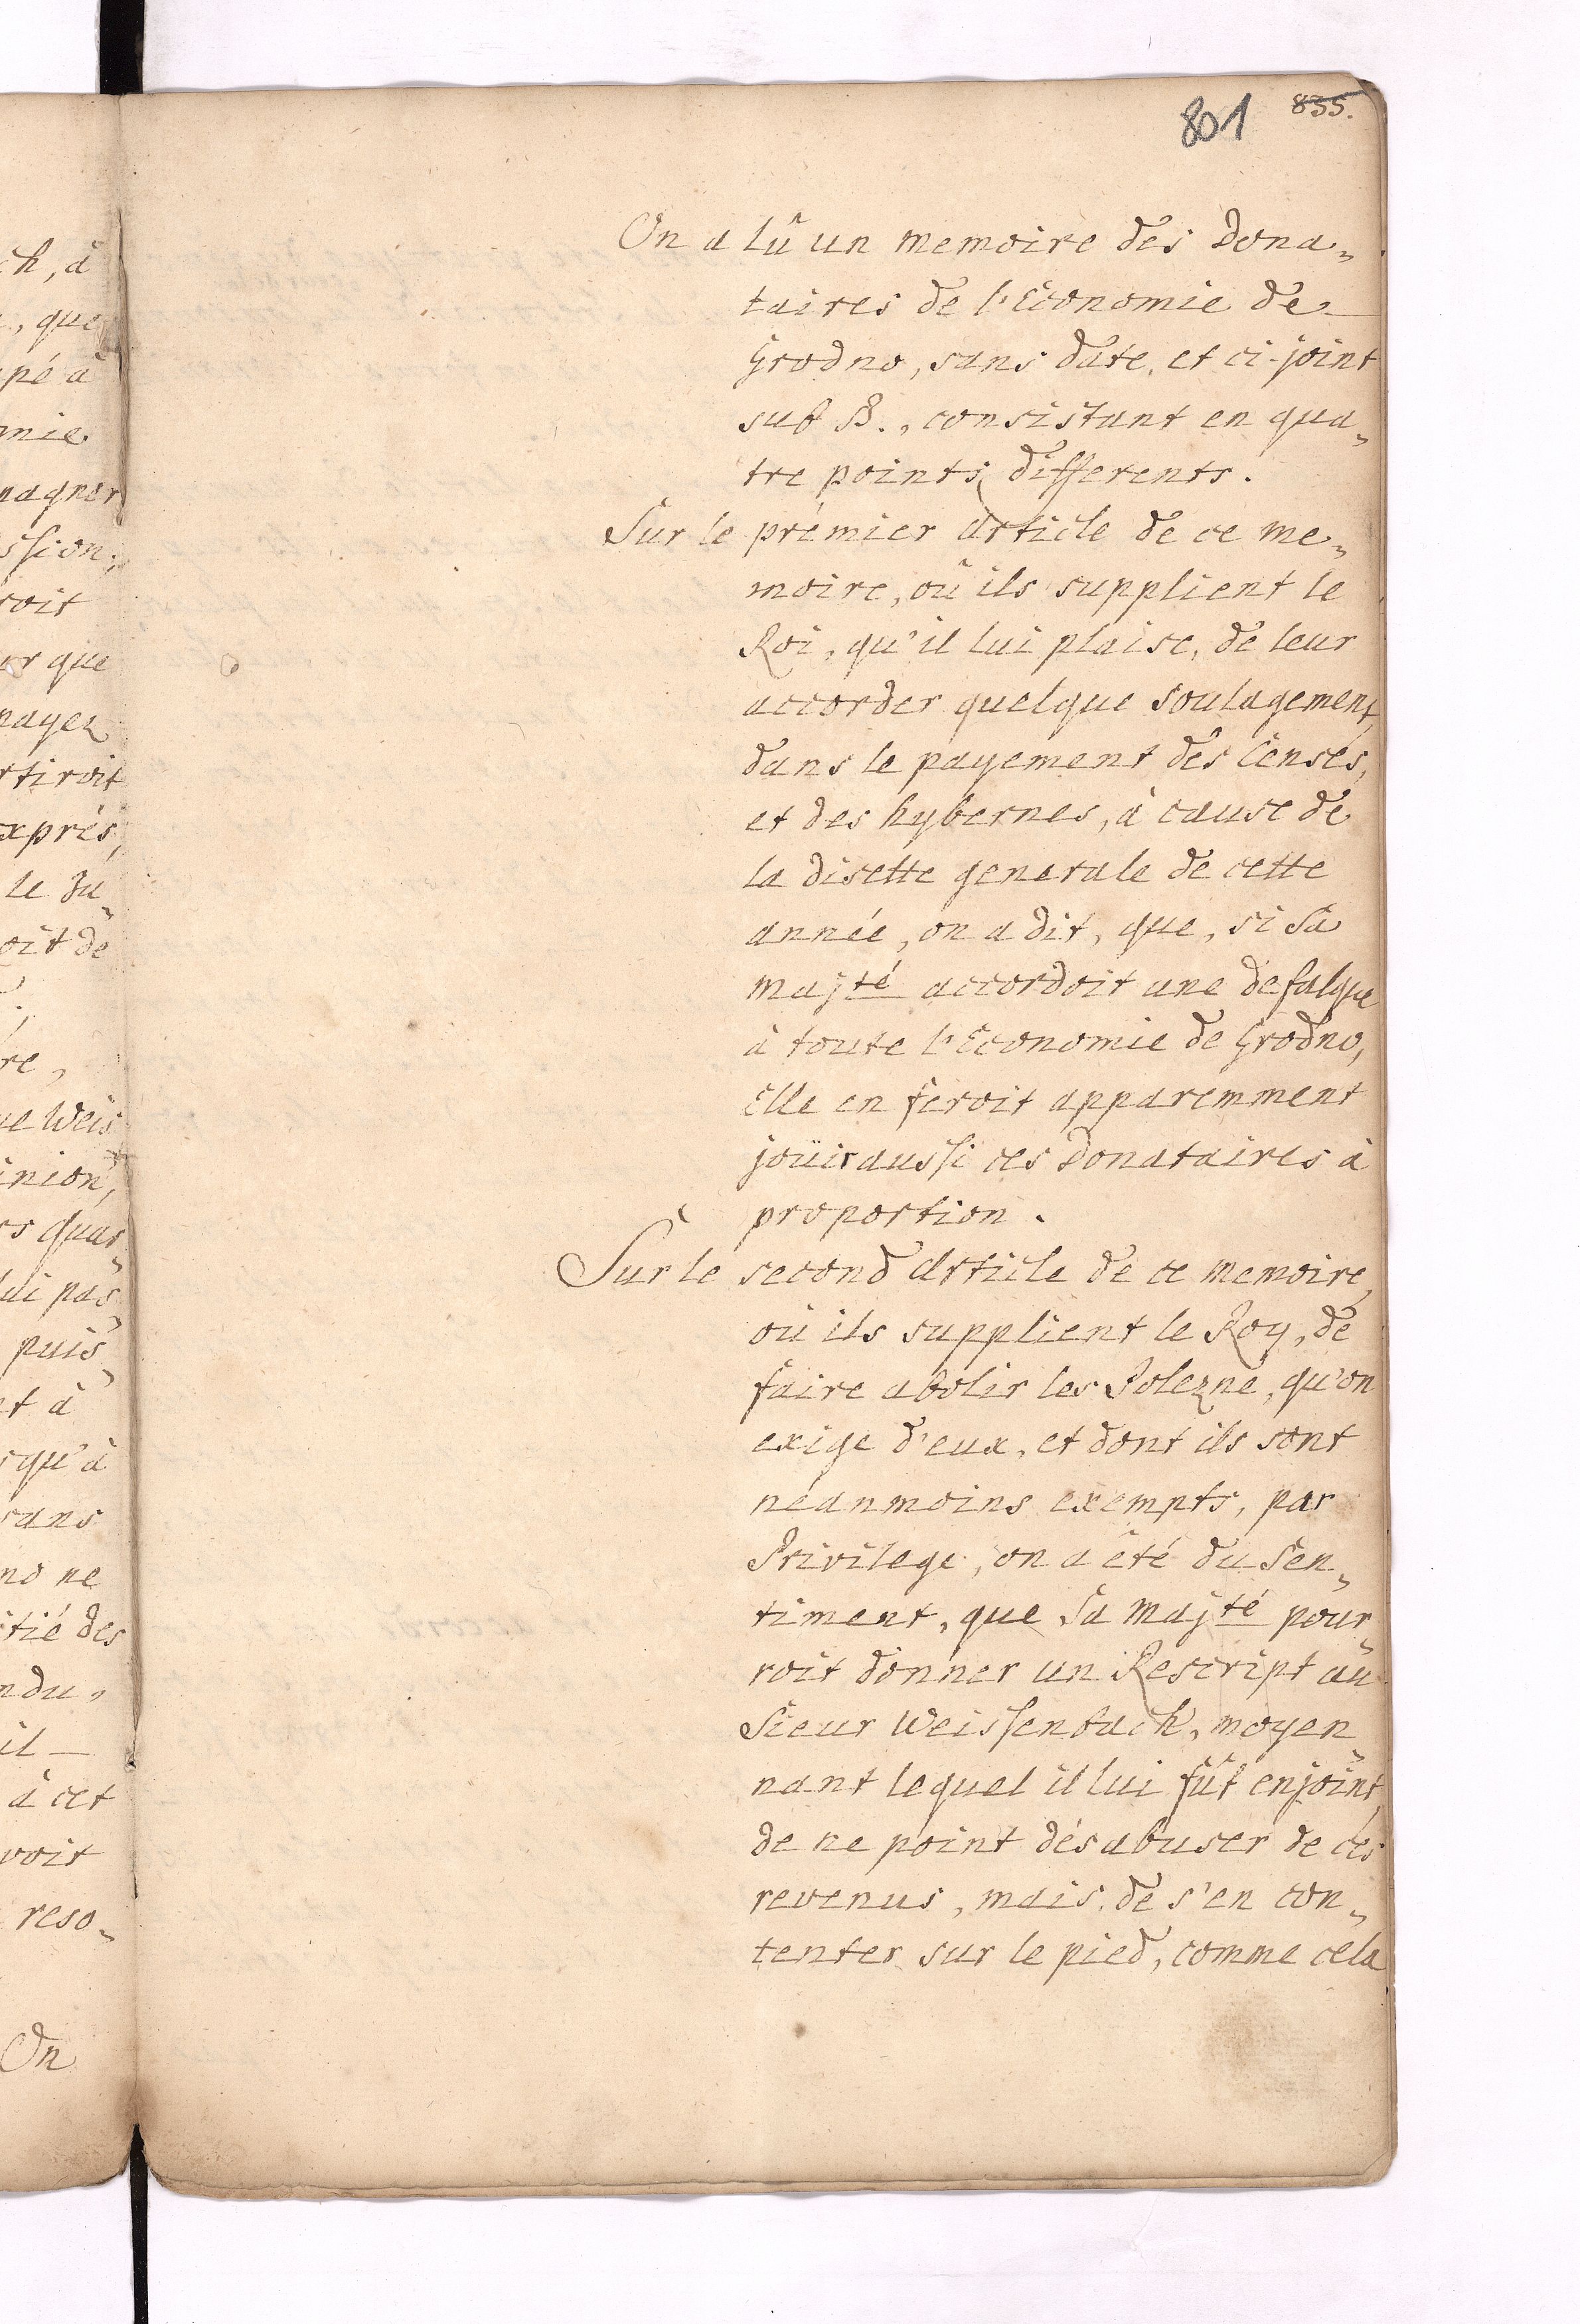 801 835.
ch, à
, que
pé à
mie
magner
ssion,
roit
ur que
payez
rtiroit
xprés,
le Ju„
oit de
re,
ue Weis
inion,
rs quar„
lui pas
puis„
nt à
squ'à
sans
no ne
itié des
ndu,
il
à cet
voit
reso„
On
On a lû un memoire des Dona„
taires de l'Economie de
Grodno, sans date, et ci-joint
sub B., consistant en qua„
tre points differents.
Sur le prémier Article de ce me„
moire, où ils supplient le
Roi, qu'il lui plaise, de leur
accorder quelque soulagement,
dans le payement des Censes,
et des hybernes, à cause de
la disette generale de cette
année, on a dit, que, si Sa
Majté accordoit une defalque
à toute l'Economie de Grodno,
Elle en feroit apparemment
joüir aussi ces Donataires à
proportion.
Sur le second Article de ce memoire,
où ils supplient le Roy, de
faire abolir les Polezne, qu'on
exige d'eux, et dont ils sont
néanmoins exempts, par
Privilege, on a été du sen„
timent, que Sa Majté pour„
roit donner un Rescript au
Sieur Weissenbach, moyen„
nant lequel il lui fût enjoint,
de ne point désabuser de ces
revenus, mais de s'en con„
tenter sur le pied, comme cela